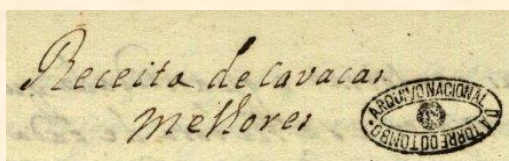 Receita de Cavacas
Melhores
ARQUIVO NACIONAL DA TORRE DO TOMBO